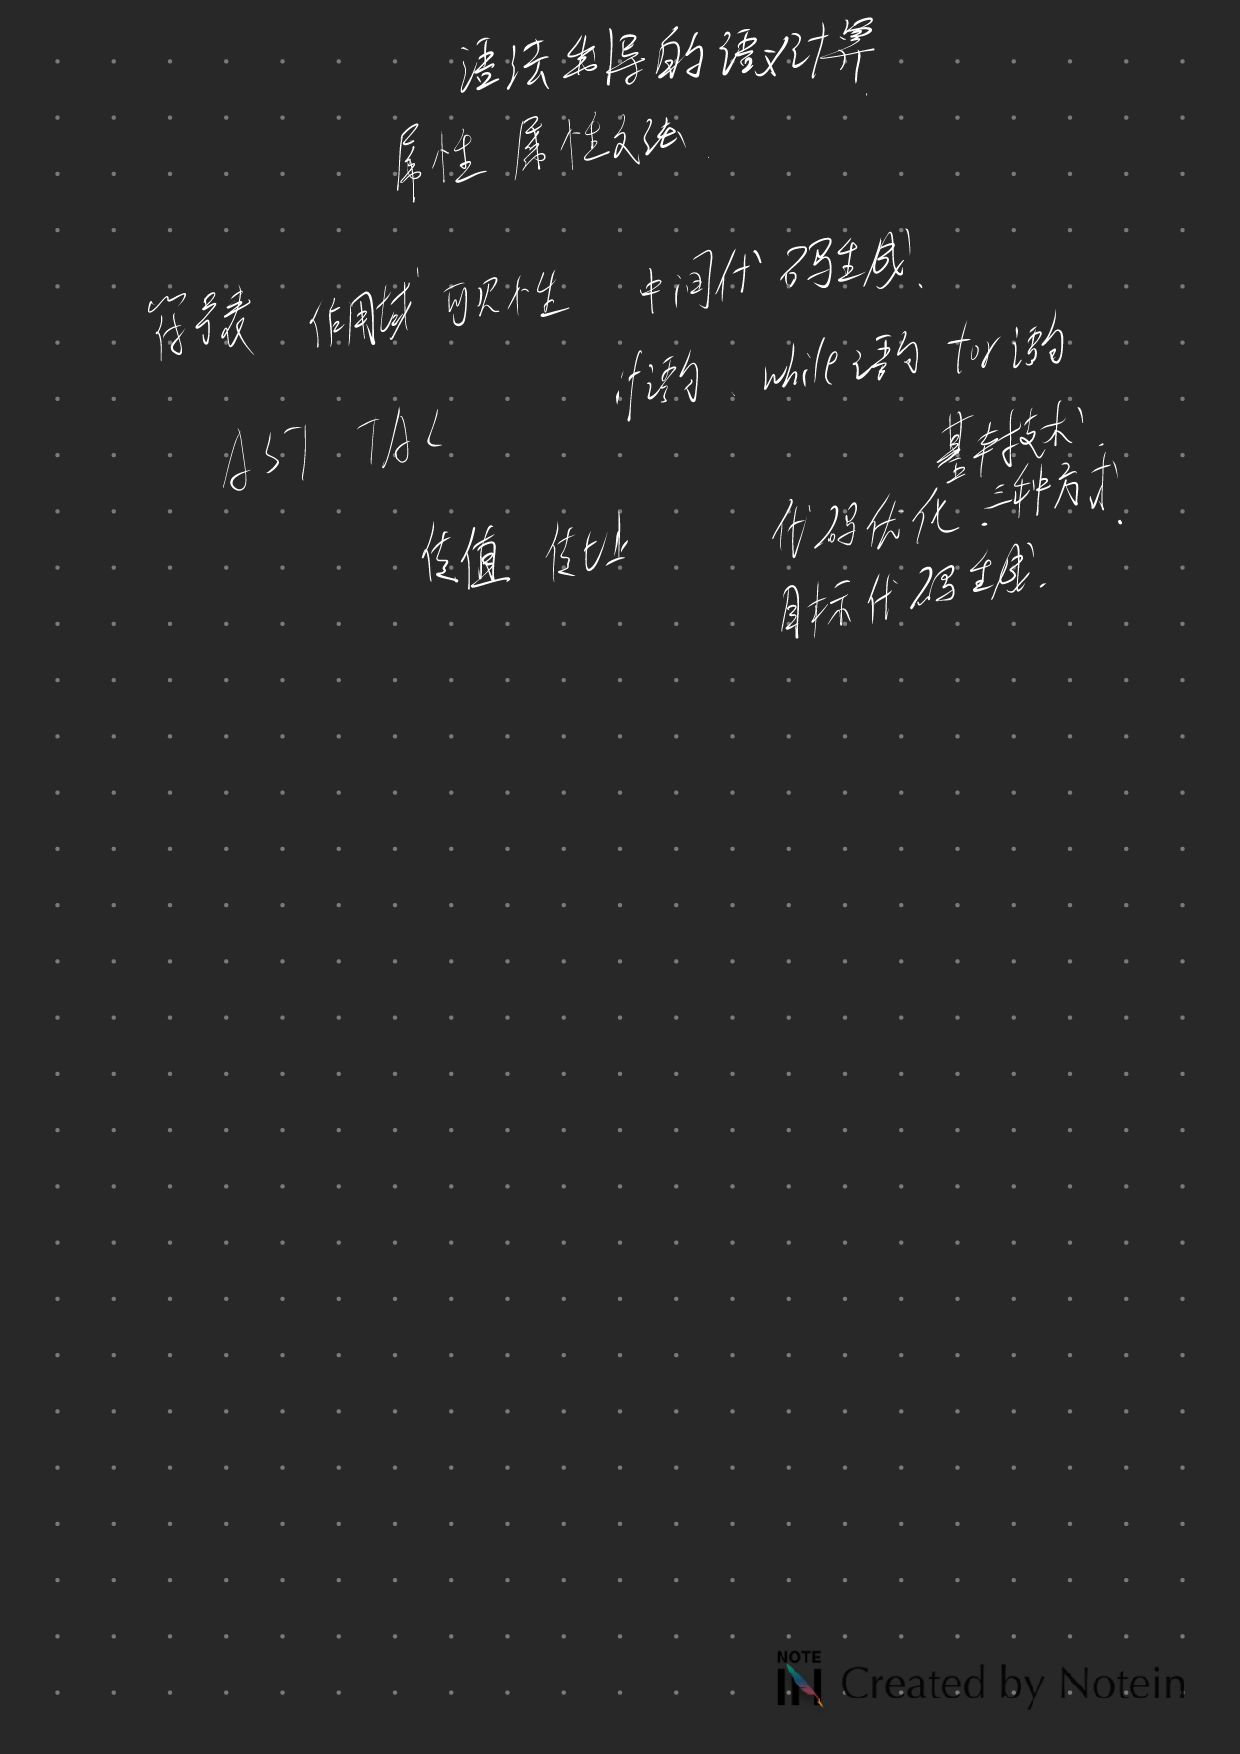 语法制导的语义计算
属性 属性文法.
符号表 作用域 可见性 中间代码生成.
if语句、while语句 for语句
AST TAC
基本技术.
代码优化.三种方式.
传值 传址
目标代码生成.
NOTE IN Created by Notein